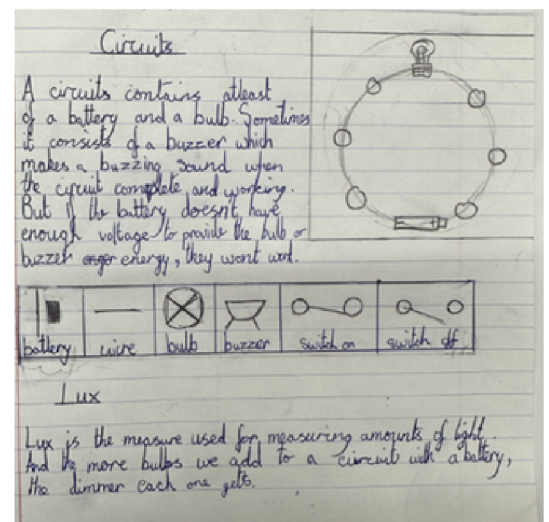 Circuits
A circuits contains atleast
of a battery and a bulb. Sometimes
it consists of a buzzer which
makes a buzzing sound when
the circuit complete and working.
But if the battery doesn't have
enough voltage to provide the bulb or
buzzer energy, they wont work.
battery wire bulb buzzer switch on switch off
Lux
Lux is the measure used for measuring amounts of light.
And the more bulbs we add to a circuit with a battery,
the dimmer each one gets.